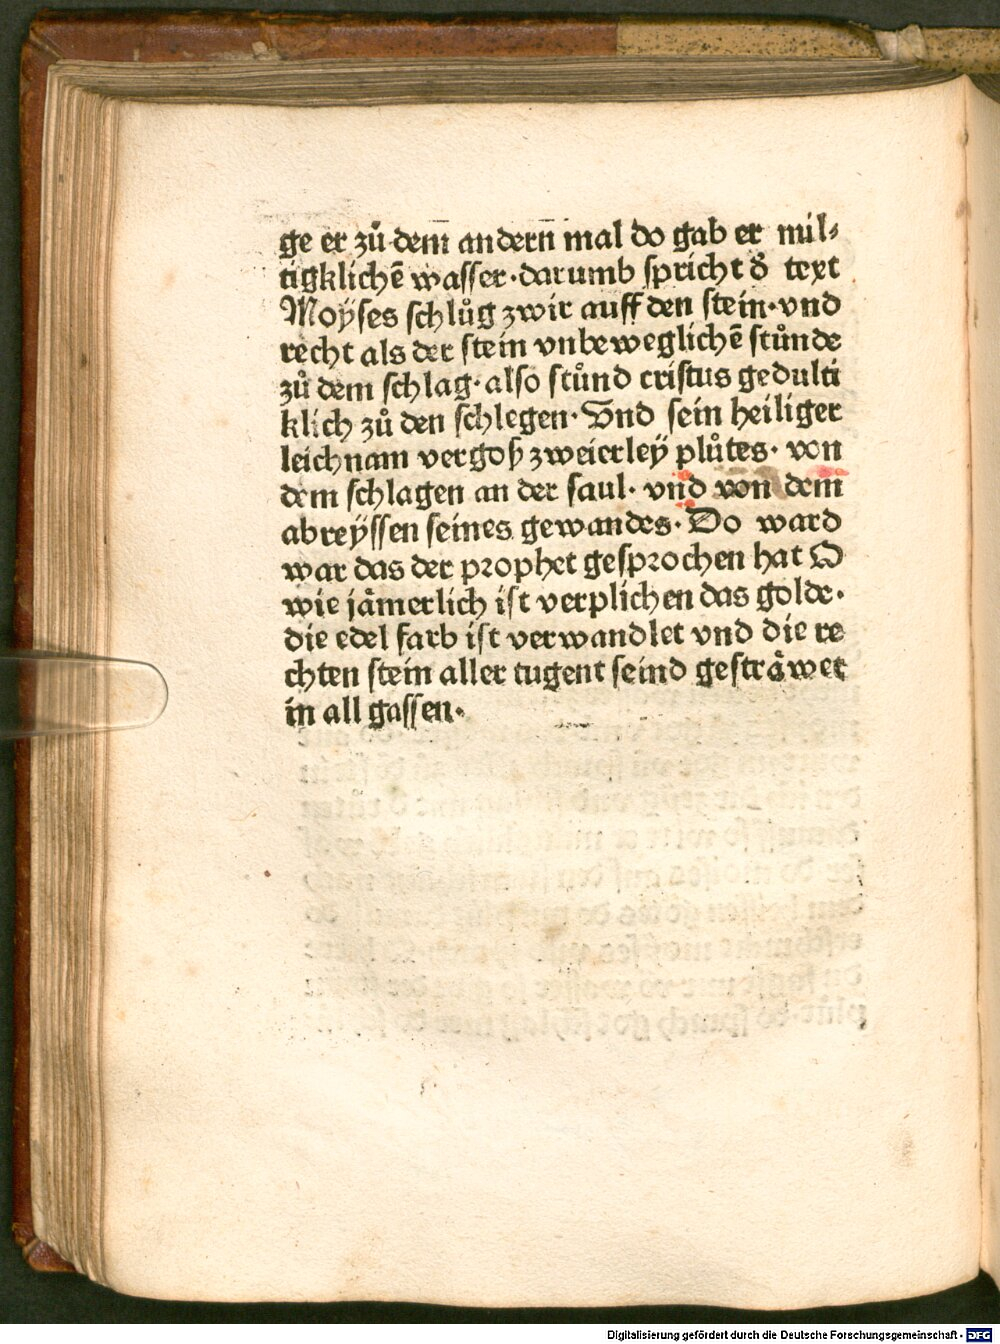 ge er zuͦ dem andern mal do gab er mil⸗
tigklichē wasser·darumb spricht d̕ text
Moÿses schluͦg zwir auff den stein·vnd
recht als der stein vnbeweglichē stuͦnde
zuͦ dem schlag·also stuͦnd cristus gedulti
klich zuͦ den schlegen·Vnd sein heiliger
leichnam vergoß zweierleÿ pluͦtes· von
dem schlagen an der saul· vnd von dem
abreÿssen seines gewandes·Do ward
war das der prophet gesprochen hat O
wie jaͤmerlich ist verplichen das golde·
die edel farb ist verwandlet vnd die re
chten stein aller tugent seind gestraͤwet
in all gassen·
Digitalisierung gefördert durch die Deutsche Forschungsgemeinschaft - DFG